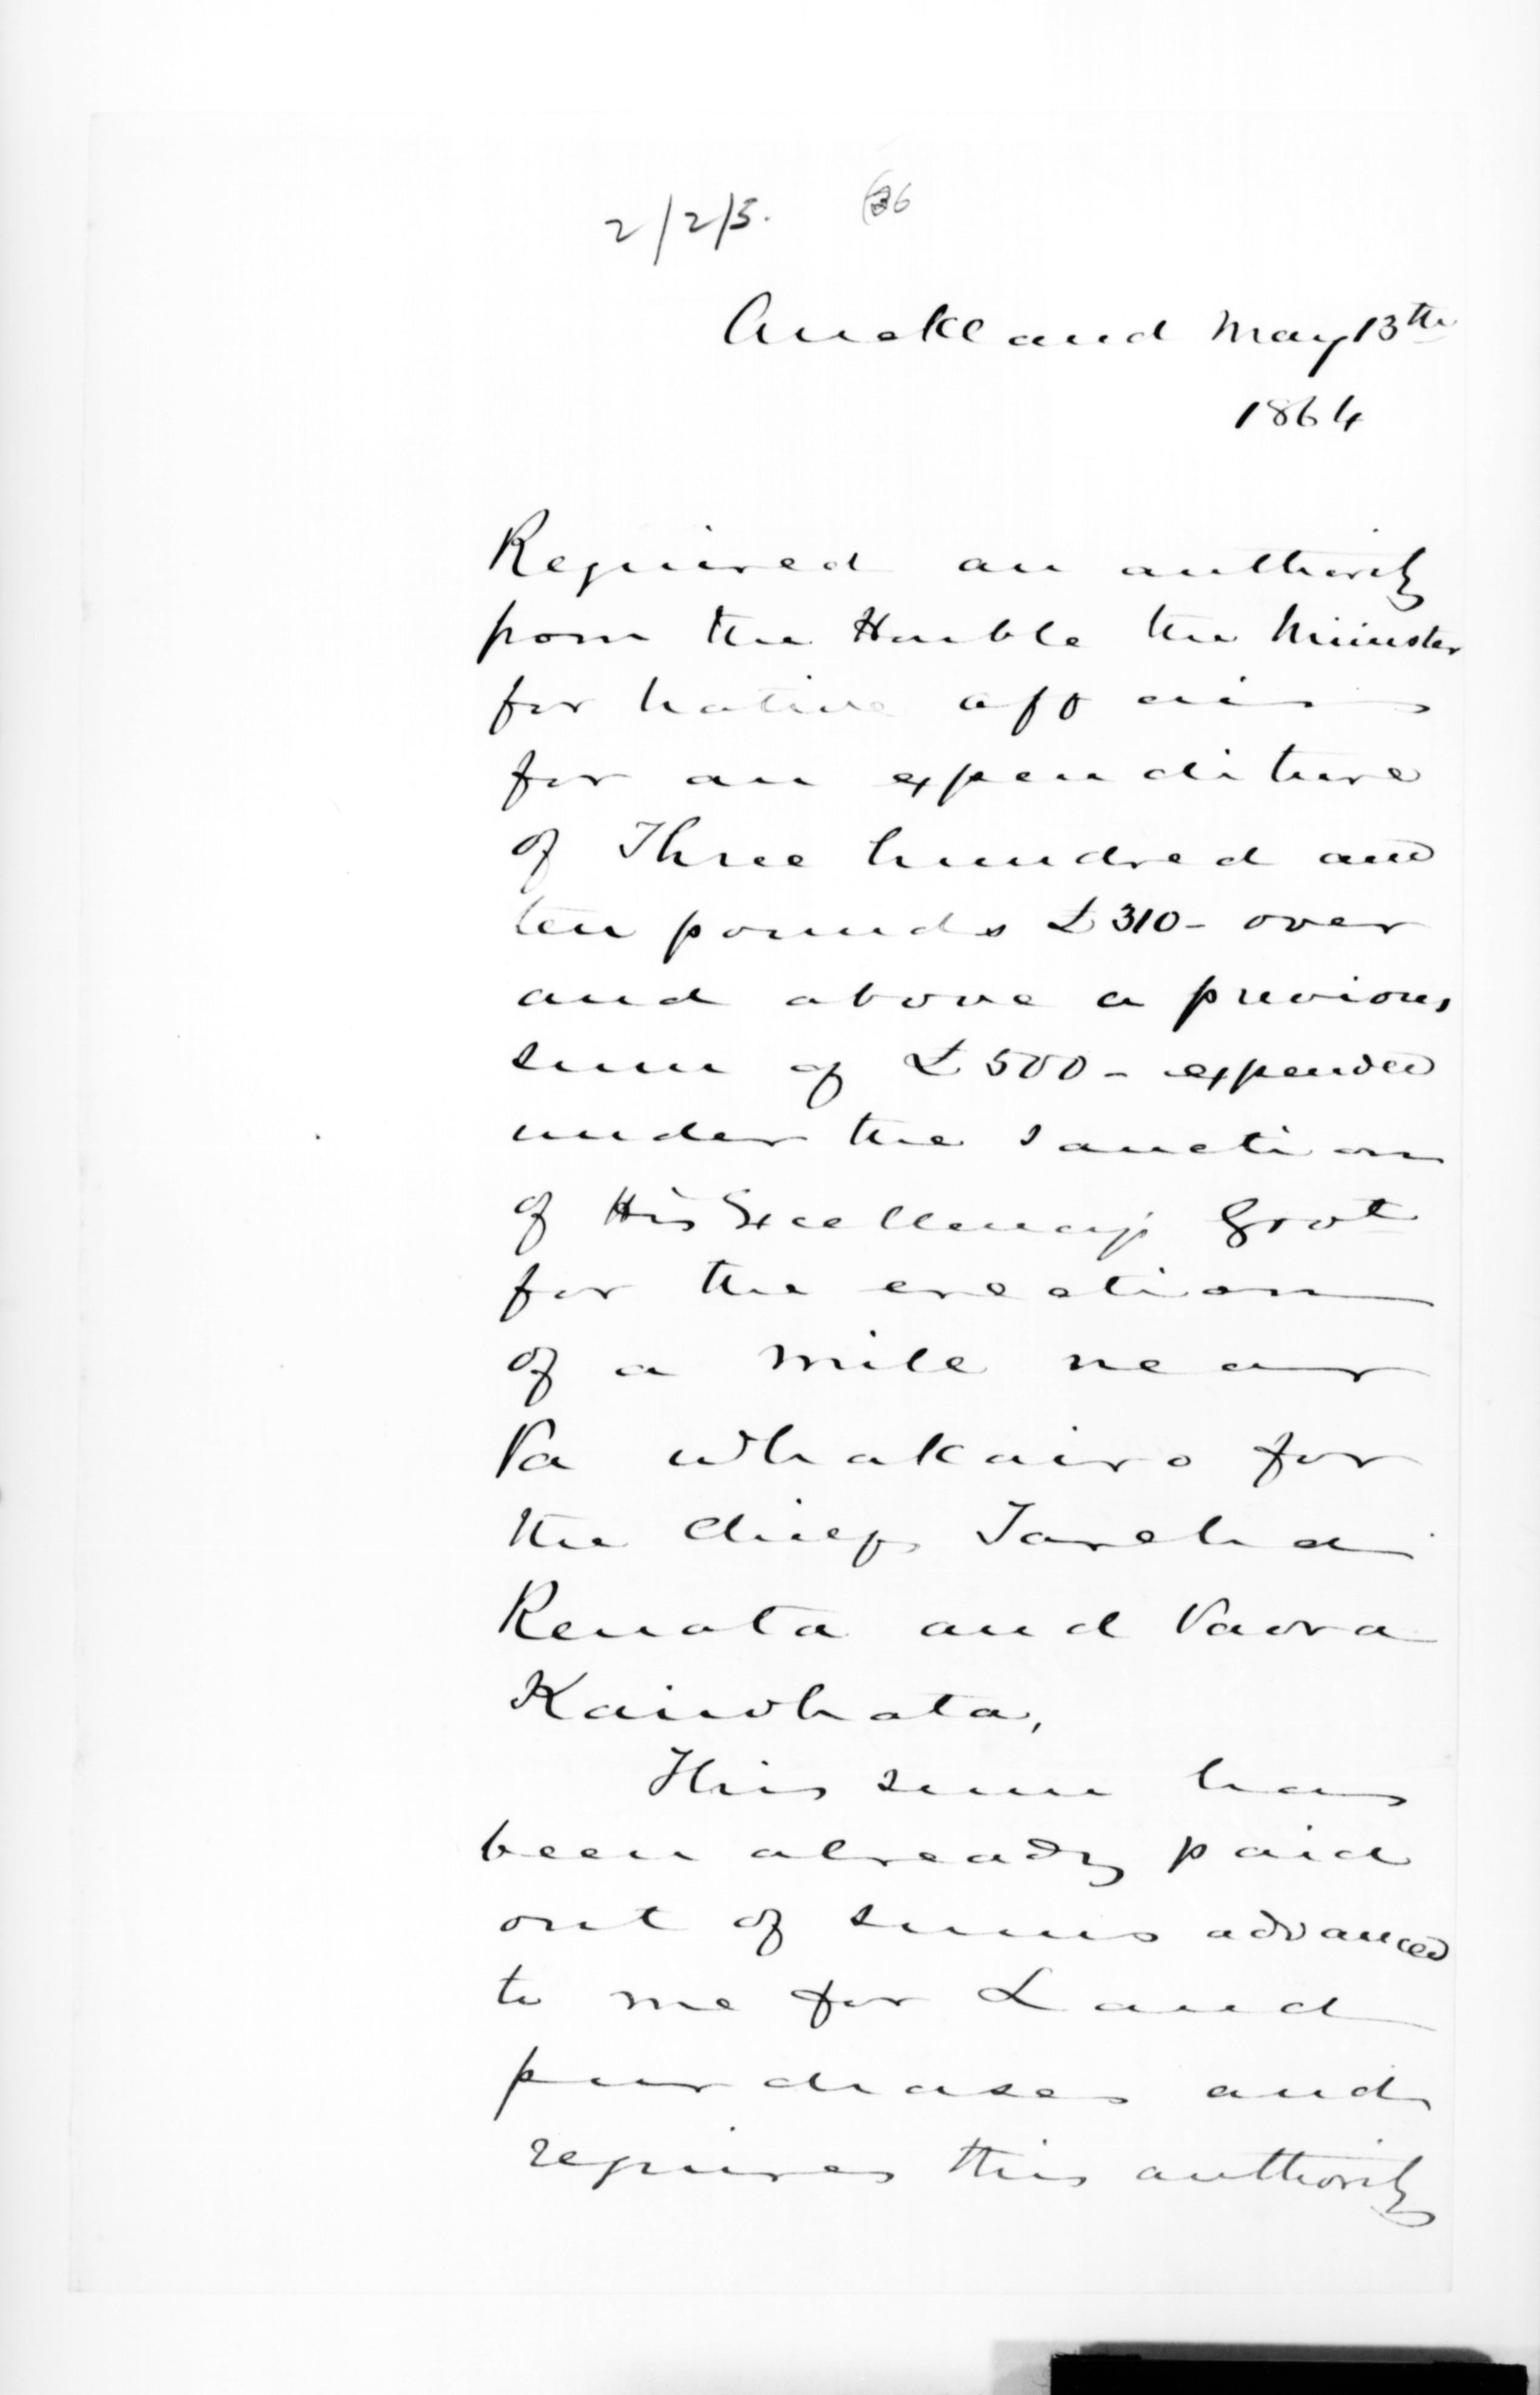 2/2/5. 36
Auckland May 13th
1864
Required an authority
from the Honble the Minister
for Native affairs
for an expenditure
of Three hundred and
ten pounds £310- over
and above a previous
sum of £500- expended
under the sanction
of His Excellency's Govt
for the erection
of a mile near
Pa Whakairo for
the chiefs Tareha
Renata and Paora
Kaiwhata,
This sum has
been already paid
out of sums advanced
to me for Land
purchases and
requires this authority